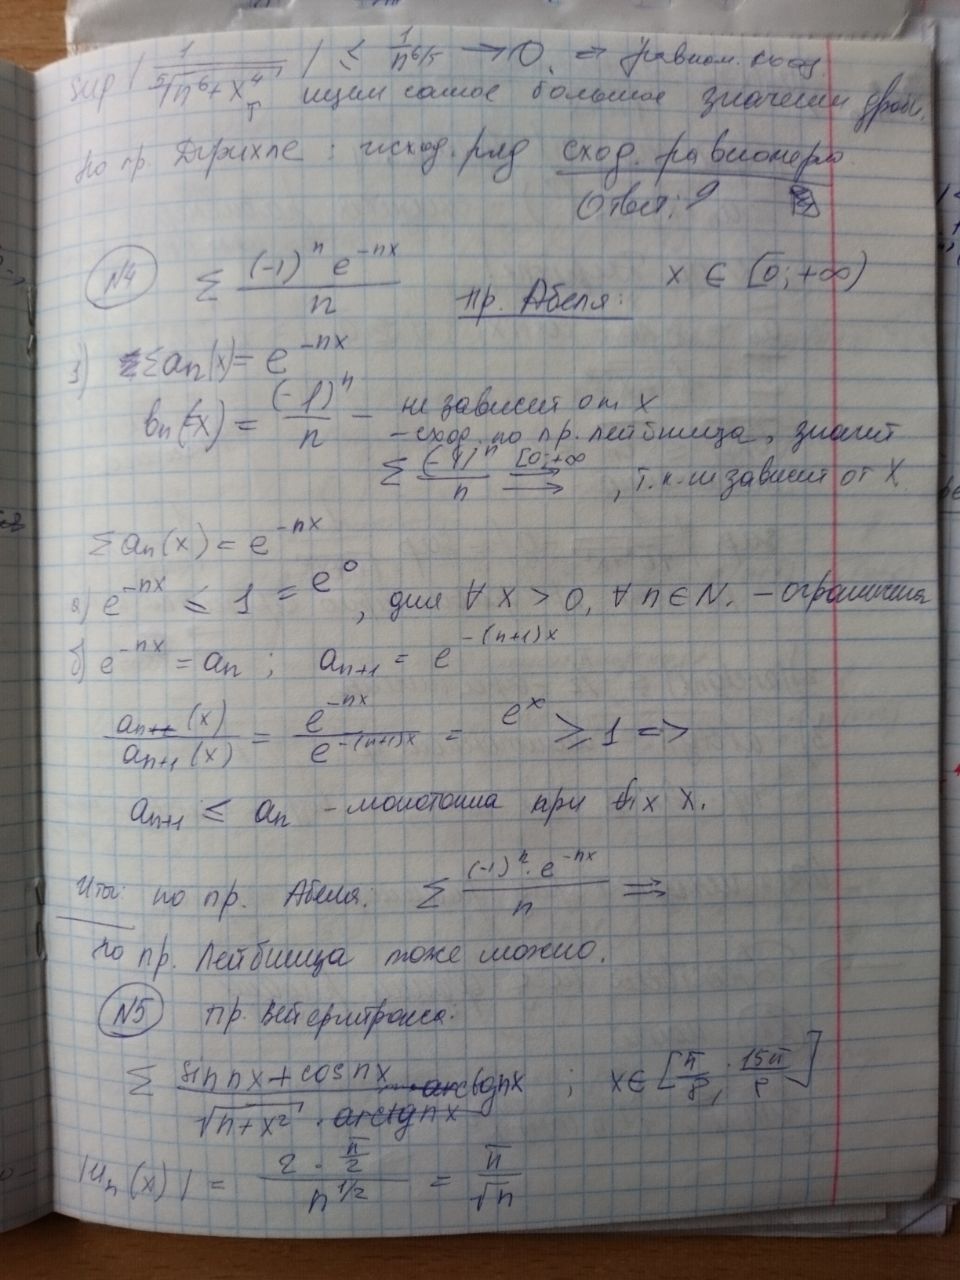 sup | 1 / ⁵√(n⁶ + x⁴) | ≤ 1/n^(6/5) → 0. ⇒ равном. сход
ищем самое большое значение дроби,
По пр. Дирихле: исход. ряд сход. равномерно
Ответ:
N4 Σ (-1)^n e^(-nx) / n x ∈ [0; +∞)
пр. Абеля:
1) Σ aₙ(x) = e^(-nx)
bₙ(x) = (-1)^n / n - не зависит от x
- сход. по пр. Лейбница, значит
Σ (-1)^n / n ⇉ [0; +∞ , т.к. не зависит от x
Σ aₙ(x) = e^(-nx)
а) e^(-nx) ≤ 1 = e⁰, для ∀ x > 0, ∀ n ∈ N. - ограничена
б) e^(-nx) = aₙ ; aₙ₊₁ = e^(-(n+1)x)
aₙ(x) / aₙ₊₁(x) = e^(-nx) / e^(-(n+1)x) = e^x ≥ 1 =>
aₙ₊₁ ≤ aₙ - монотонна при вх x.
Итог: по пр. Абеля: Σ (-1)^n · e^(-nx) / n ⇉
По пр. Лейбница тоже можно.
N5 пр. Вейерштрасса:
Σ (sin nx + cos nx) / √(n + x²) · arctg nx ; x ∈ [π/8, 15π/8]
|uₙ(x)| = (2 · π/2) / n^(1/2) = π / √n